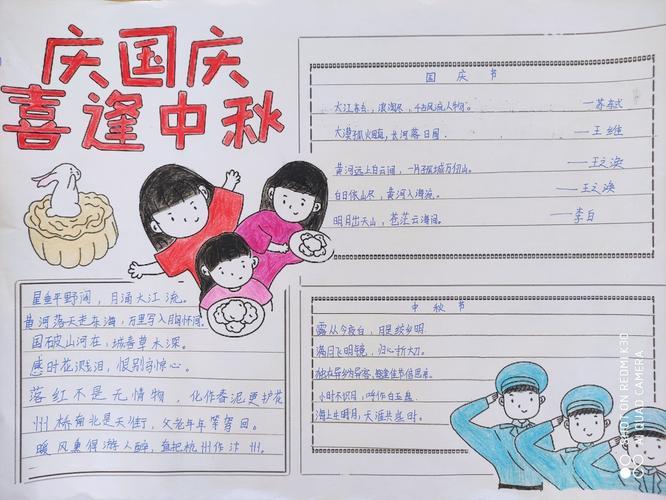 庆国庆
喜逢中秋
国庆节
大江东去，浪淘尽，千古风流人物。——苏东坡
大漠孤烟直，长河落日圆。——王维
黄河远上白云间，一片孤城万仞山。——王之涣
白日依山尽，黄河入海流。——王之涣
明月出天山，苍茫云海间。——李白
星垂平野阔，月涌大江流。
黄河落天走东海，万里写入胸怀间。
国破山河在，城春草木深。
感时花溅泪，恨别鸟惊心。
落红不是无情物，化作春泥更护花
州桥南北是天街，父老年年等驾回。
暖风熏得游人醉，直把杭州作汴州。
中秋节
露从今夜白，月是故乡明。
满月飞明镜，归心折大刀。
独在异乡为异客，每逢佳节倍思亲。
小时不识月，呼作白玉盘。
海上生明月，天涯共此时。
SHOT ON REDMI K30
AI QUAD CAMERA